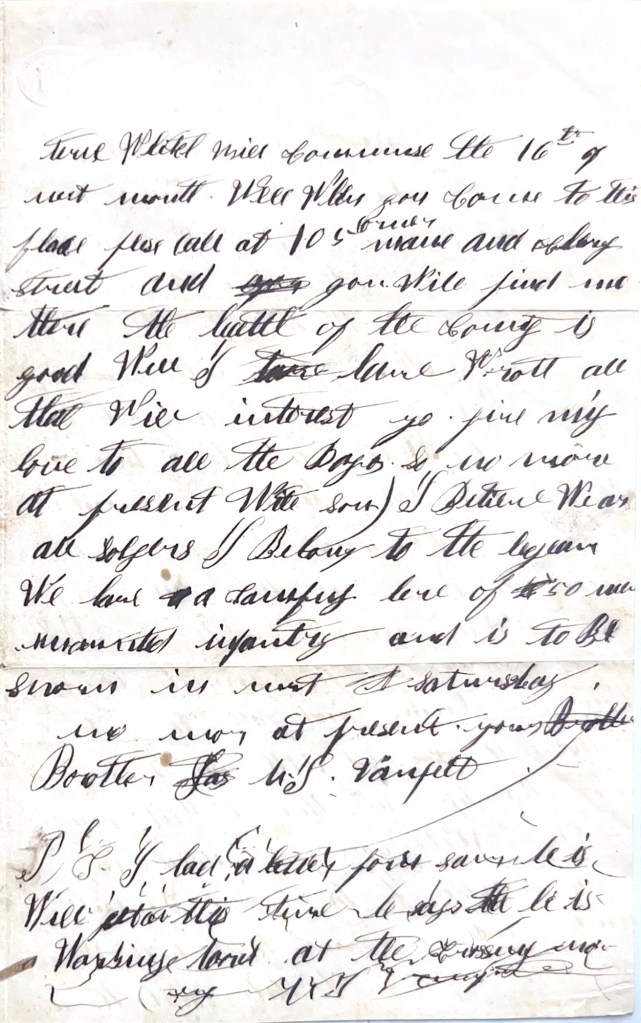 time Which will Commense the 16th of
next month. Well When you Come to this
place plese call at 105 Corner main and
street and you Will find me
there the helth of the County is
good Well I have Wrote all
that Will interest yo. give my
love to all the Boys. so no more
at present Write soon) I Believe We are
all soldiers I Belong to the legion
We have a Company here of 50 men
mounted infantry and is to Be
sworn in next saturday
no more at present. yours
Brother
P S I had a letter from he is
Well at this time he says he is
Working at the